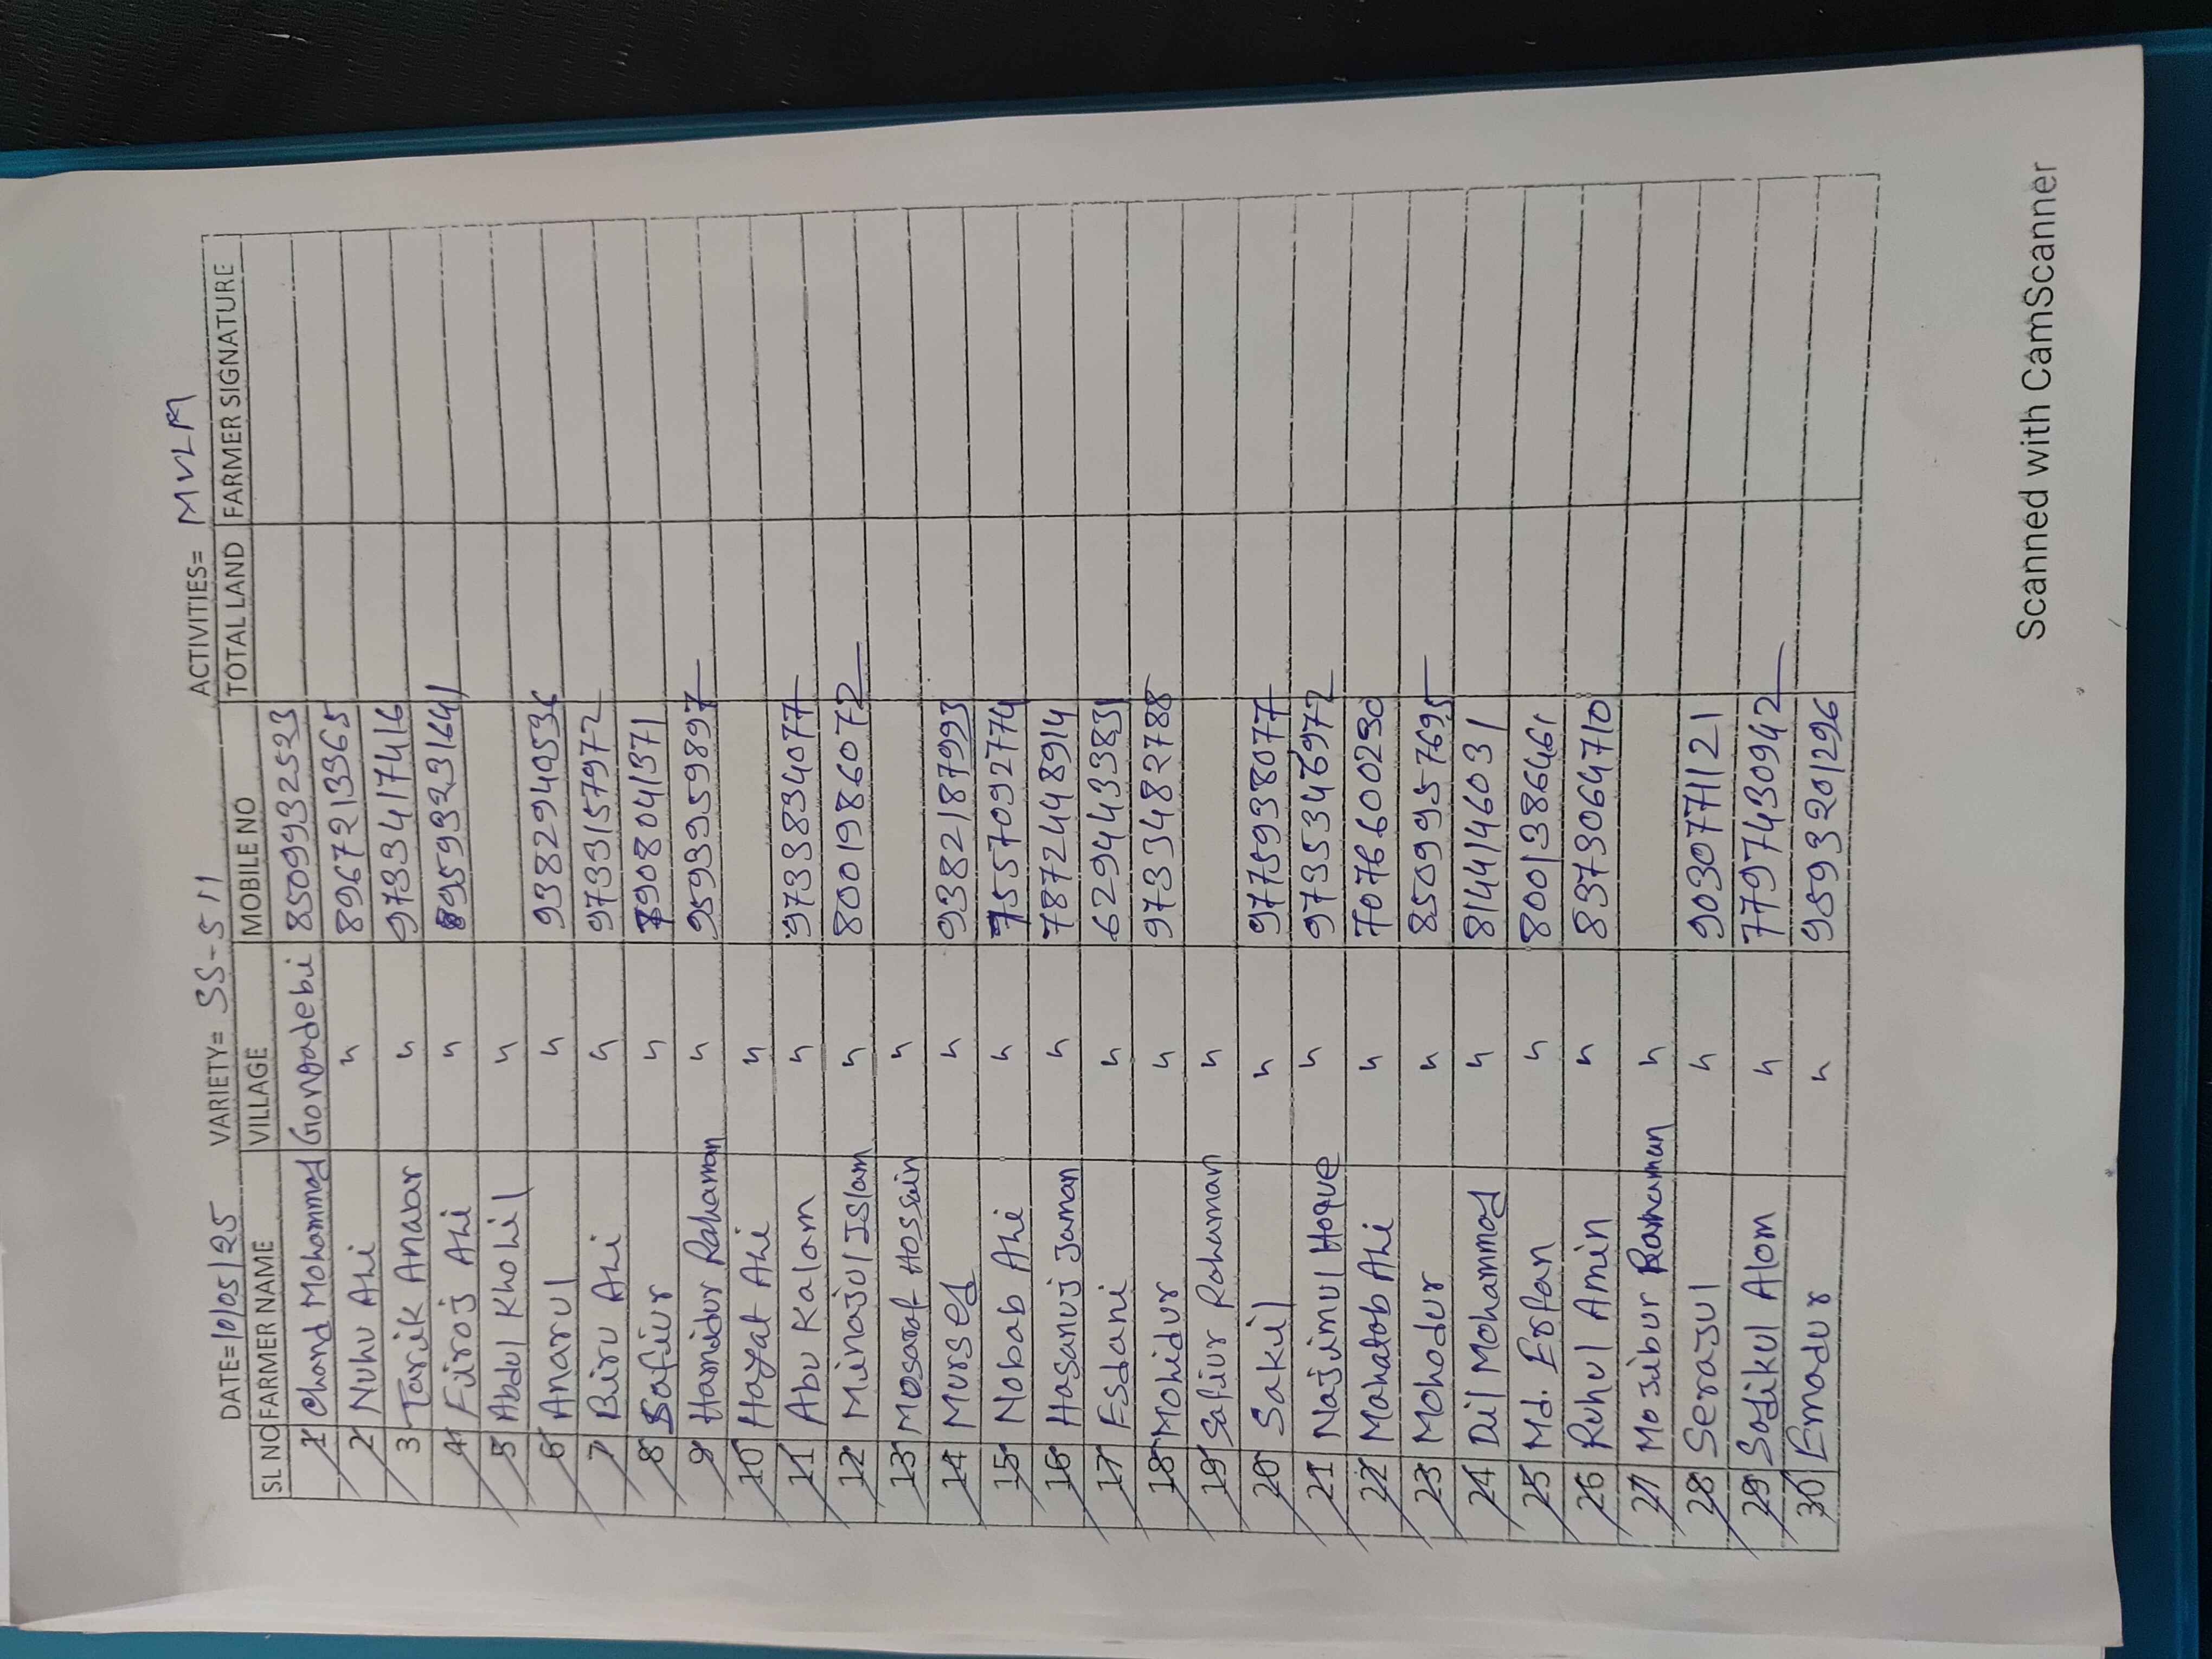 DATE=10/05/25 VARIETY= SS-511 ACTIVITIES= MVLM
SL NO FARMER NAME VILLAGE MOBILE NO TOTAL LAND FARMER SIGNATURE
1 Chand Mohammad Gonradebi 8509932523
2 Nuhu Ali " 8967213365
3 Tarik Anawar " 9733417416
4 Firoj Ali " 9593231641
5 Abdul Kholil "
6 Anarul " 9382940536
7 Biru Ali " 9733157972
8 Safiur " 7908041371
9 Hamidur Rahaman " 9593959897
10 Hayat Ali "
11 Abu Kalam " 9733834077
12 Minajul Islam " 8001986072
13 Mosaraf Hossain "
14 Mursed " 9382187993
15 Nobab Ali " 7557092774
16 Hasanuj Jaman " 7872448914
17 Esdani " 6294433831
18 Mohidur " 9733482788
19 Safiur Rahaman "
20 Sakil " 9775938077
21 Najimul Hoque " 9735346972
22 Mahatab Ali " 7076600290
23 Mohodur " 8509957695
24 Dil Mohammad " 8144146031
25 Md. Erfan " 8001386461
26 Ruhul Amin " 8373064710
27 Mosibur Rahaman "
28 Serajul " 9030771121
29 Sadikul Alom " 7797430942
30 Emadur " 9593201296
Scanned with CamScanner